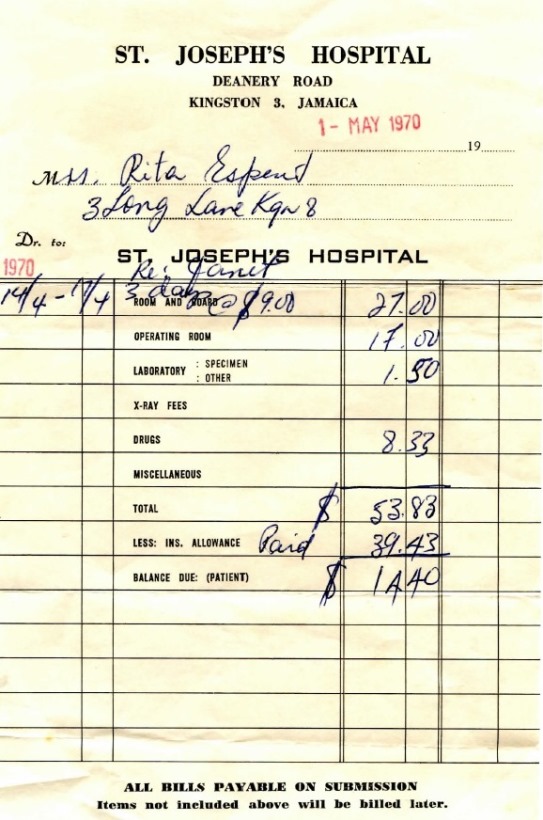 ST. JOSEPH'S HOSPITAL
DEANERY ROAD
KINGSTON 3, JAMAICA
1 - MAY 1970
19
Mrs. Rita Espeut
3 Long Lane Kgn 8
Dr. to:
ST. JOSEPH'S HOSPITAL
1970 Re: Janet
14/4 - 17/4 3 days @ $9.00
ROOM AND BOARD 27.00
OPERATING ROOM 17.00
LABORATORY : SPECIMEN
: OTHER 1.50
X-RAY FEES
DRUGS 8.33
MISCELLANEOUS
TOTAL $ 53.83
LESS: INS. ALLOWANCE Paid 39.43
BALANCE DUE: (PATIENT) $ 14.40
ALL BILLS PAYABLE ON SUBMISSION
Items not included above will be billed later.